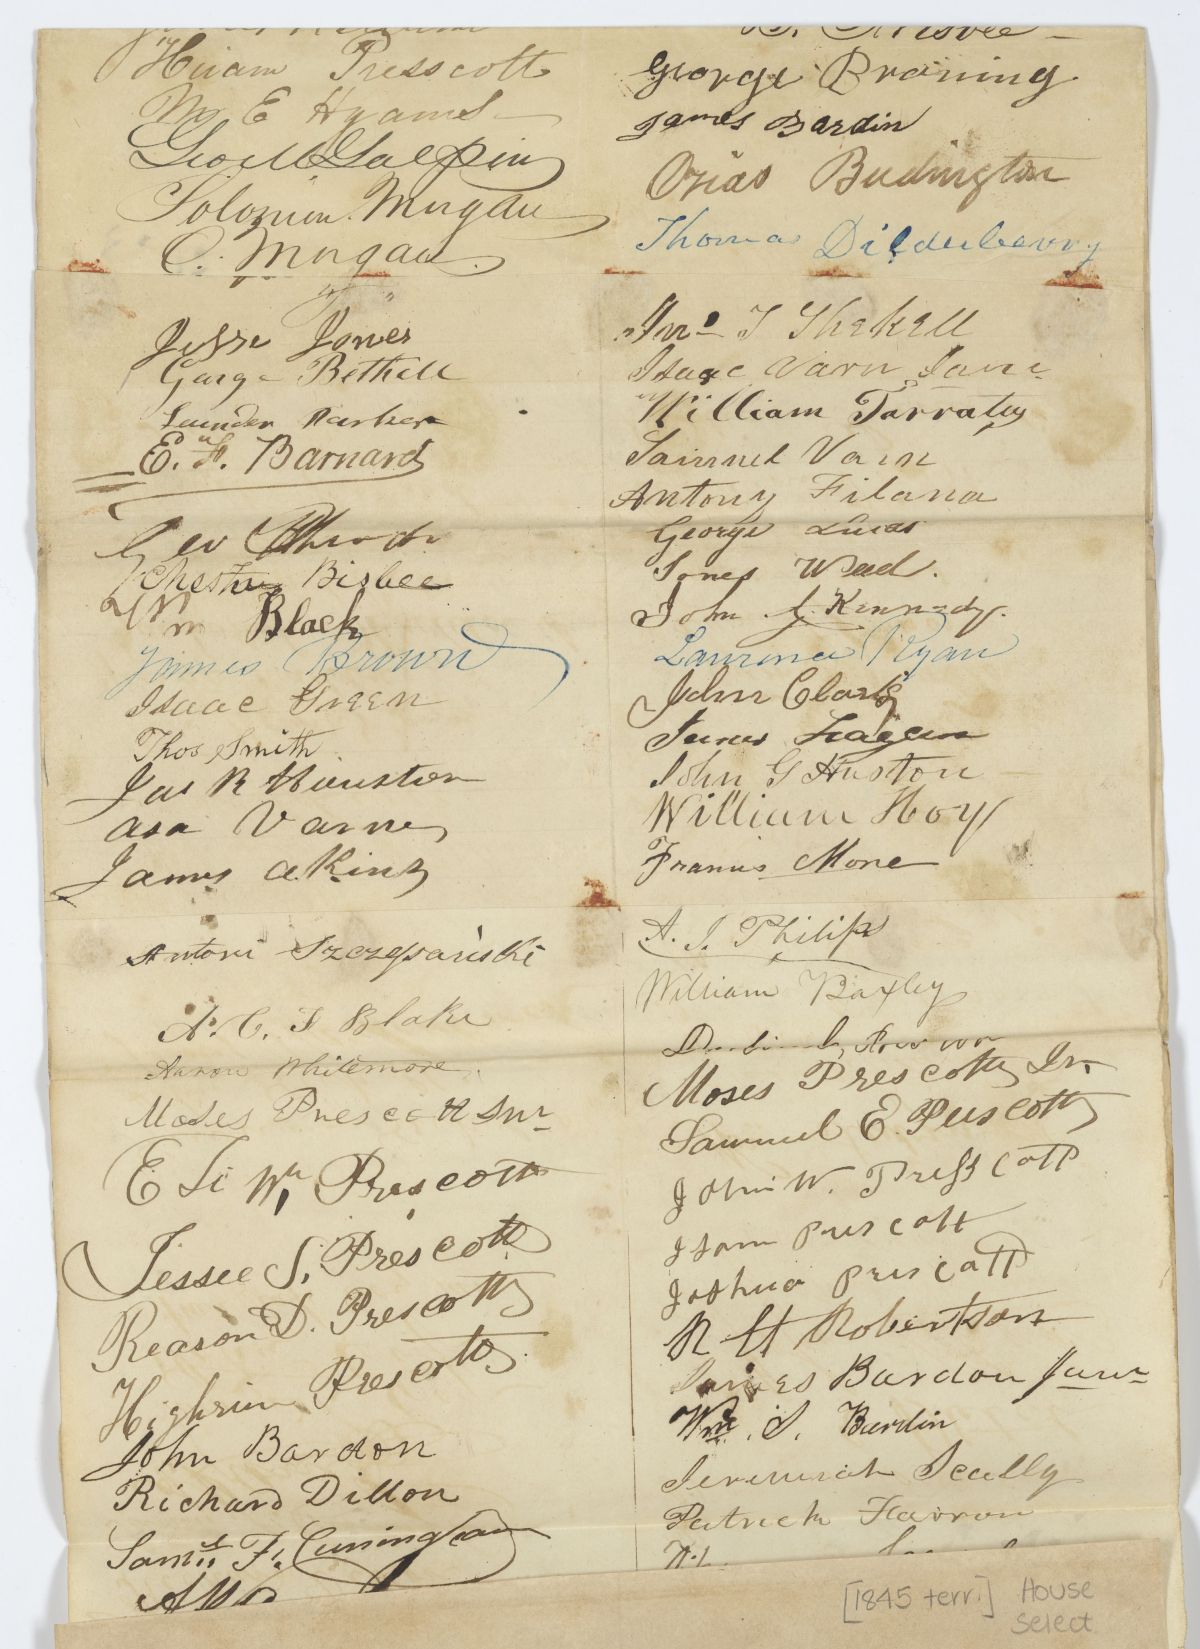 Hiram Presscott
M E Hyams
Geo M Galphin
Solomon Mugdu
C. Mugdu
Jesse Jones
George Bethell
Saunder Parker
E. F. Barnard
Geo
Chester Bisbee
Wm Black
James Brown
Isaac Green
Thos Smith
Jas R Houston
asa Varne
James akins
Antoni Szczepański
A. C. S Blake
Aaron Whitemore
Moses Prescott Snr
E Li Wm Prescott
Jessee S. Prescott
Reason D. Prescott
Prescott
John Bardon
Richard Dillon
Saml F. Cuningham
George Braning
James Bardin
Ozias Budington
Thomas Dilderbeary
Jno T Shekell
Isaac Varn Junr
William Tarratus
Samuel Varn
Antony Filana
George Lucas
Jones Weed.
John G. Kennedy.
Laurence Ryan
John Clark
John G Huston
William Hoy
Francis More
A. J. Philips
William Baxley
Moses Prescott Jr.
Samuel E. Prescott
John W. Presscott
Isam Prescott
Joshua Prescott
R H Robertson
James Bardon Junr
Wm. S. Bardin
Jeremiah Scully
Patrick Farron
[1845 terr.] House
Select